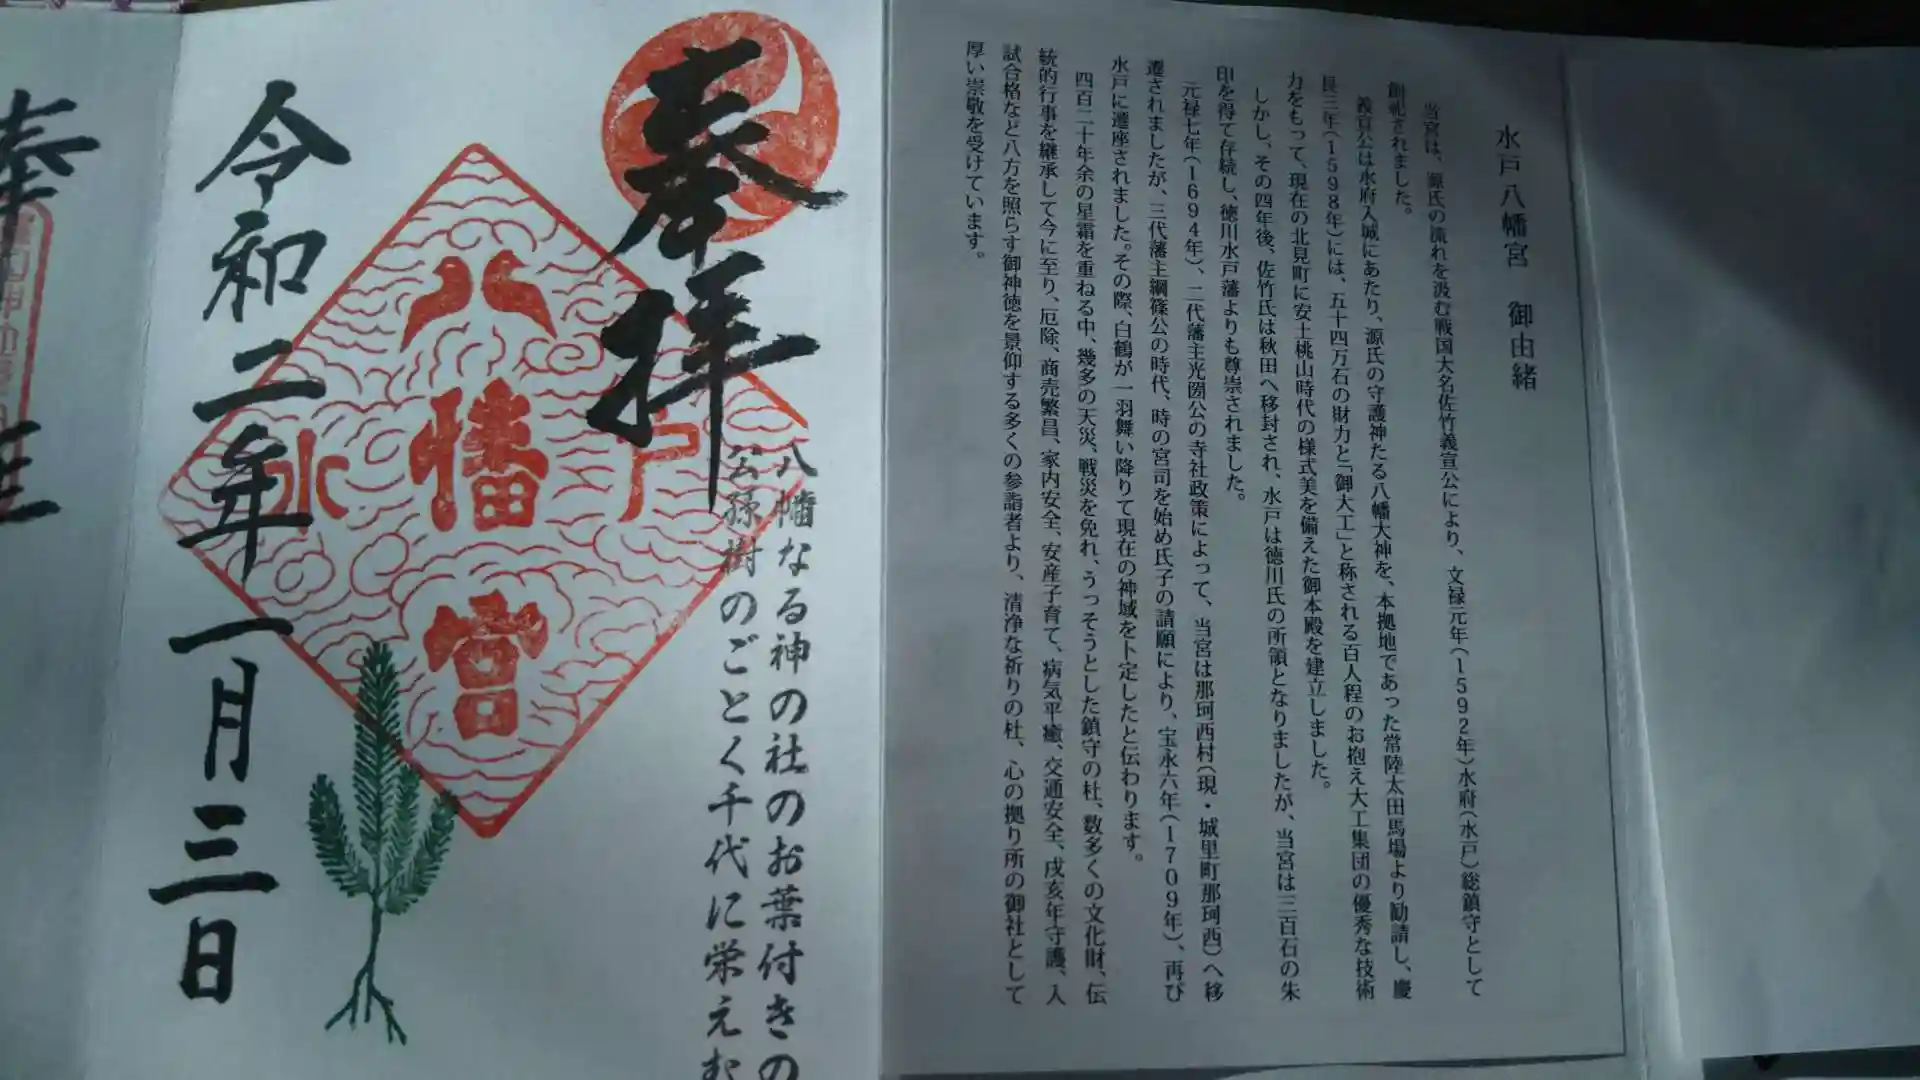 水戸八幡宮　御由緒
当宮は、源氏の流れを汲む戦国大名佐竹義宣公により、文禄元年(1592年)水府(水戸)総鎮守として
創祀されました。
義宣公は水府入城にあたり、源氏の守護神たる八幡大神を、本拠地であった常陸太田馬場より勧請し、慶
長三年(1598年)には、五十四万石の財力と「御大工」と称される百人程のお抱え大工集団の優秀な技術
力をもって、現在の北見町に安土桃山時代の様式美を備えた御本殿を建立しました。
しかし、その四年後、佐竹氏は秋田へ移封され、水戸は徳川氏の所領となりましたが、当宮は三百石の朱
印を得て存続し、徳川水戸藩よりも尊崇されました。
元禄七年(1694年)、二代藩主光圀公の寺社政策によって、当宮は那珂西村(現・城里町那珂西)へ移
遷されましたが、三代藩主綱篠公の時代、時の宮司を始め氏子の請願により、宝永六年(1709年)、再び
水戸に遷座されました。その際、白鶴が一羽舞い降りて現在の神域を卜定したと伝わります。
四百二十年余の星霜を重ねる中、幾多の天災、戦災を免れ、うっそうとした鎮守の杜、数多くの文化財、伝
統的行事を継承して今に至り、厄除、商売繁昌、家内安全、安産子育て、病気平癒、交通安全、戌亥年守護、入
試合格など八方を照らす御神徳を景仰する多くの参詣者より、清浄な祈りの杜、心の拠り所の御社として
厚い崇敬を受けています。
奉拝
八幡なる神の社のお葉付きの
公孫樹のごとく千代に栄えむ
水戸
八幡宮
令和二年一月三日
奉